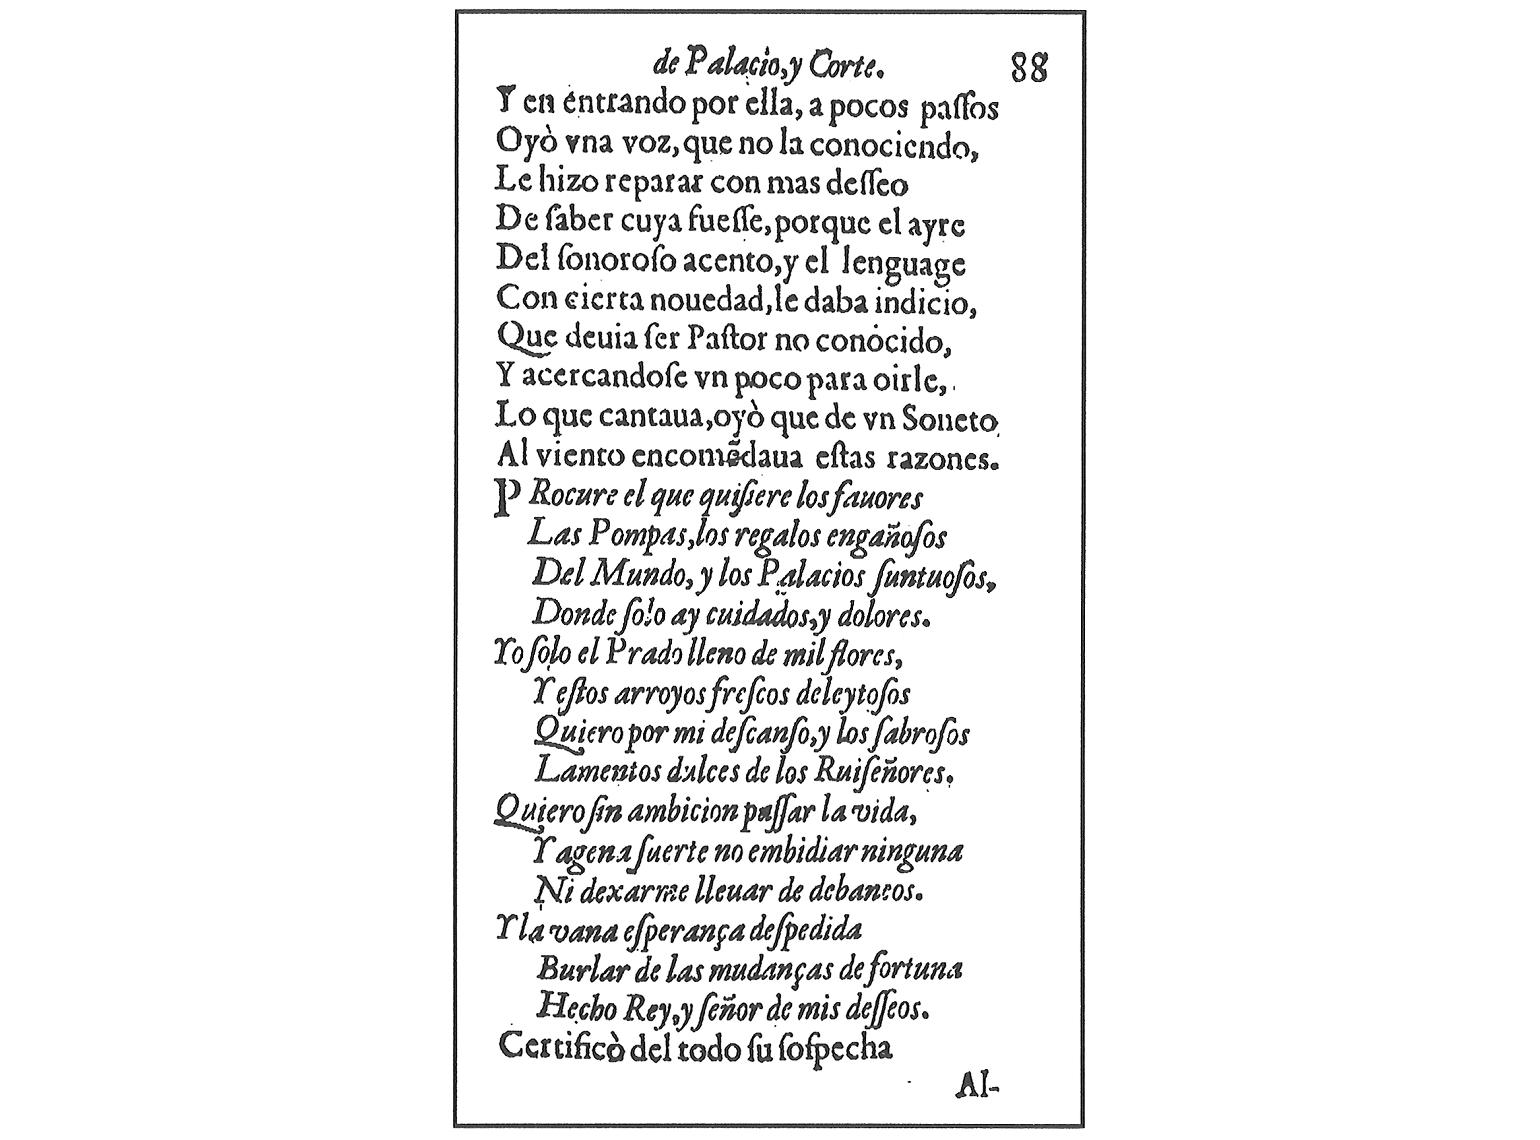 de Palacio, y Corte. 88
Y en entrando por ella, a pocos paſſos
Oyò vna voz, que no la conociendo,
Le hizo reparar con mas deſſeo
De ſaber cuya fueſſe, porque el ayre
Del ſonoroſo acento, y el lenguage
Con cierta nouedad, le daba indicio,
Que deuia ſer Paſtor no conocido,
Y acercandoſe vn poco para oirle,
Lo que cantaua, oyò que de vn Soneto
Al viento encomẽdaua eſtas razones.
PRocure el que quiſiere los fauores
Las Pompas, los regalos engañoſos
Del Mundo, y los Palacios ſuntuoſos,
Donde ſolo ay cuidados, y dolores.
Yo ſolo el Prado lleno de mil flores,
Y eſtos arroyos freſcos deleytoſos
Quiero por mi deſcanſo, y los ſabroſos
Lamentos dulces de los Ruiſeñores.
Quiero ſin ambicion paſſar la vida,
Y agena ſuerte no embidiar ninguna
Ni dexarme lleuar de debaneos.
Y la vana eſperança deſpedida
Burlar de las mudanças de fortuna
Hecho Rey, y ſeñor de mis deſſeos.
Certificò del todo ſu ſoſpecha
Al-